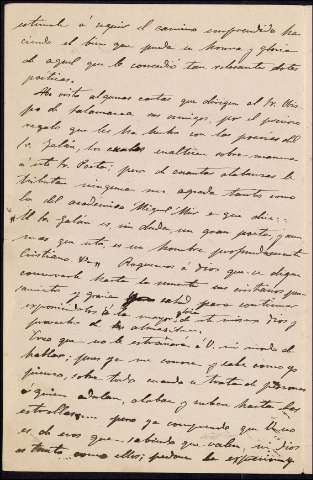 estimule á seguir el camino emprendido ha-
ciendo el bien que pueda en honra y gloria
de aquel que le concedió tan relevantes dotes
poéticas.
He visto algunas cartas que dirigen al Sr. Obis-
po de Salamanca sus amigos, por el precioso
regalo que les ha hecho con las poesías del
Sr. Galán, los cuales enaltecen sobre manera
á este Sr. Poeta; pero de cuantas alabanzas le
tributan ninguna me agrada tanto como
la del académico Miguel Mir en que dice:
"El Sr. Galán es, sin duda, un gran poeta, y aun
mas que esto es un hombre profundamente
Cristiano &a" Roguemos á Dios que se digne
conservarle hasta la muerte sus cristianos pen-
samientos y gracia salud para continuar
á la mayor gloria de Dios y
provecho de las almas.
Creo que no le estrañará á V. mi modo de
hablar, pues ya me conoce y sabe como yo
pienso, sobre todo cuando se trata de personas
á quien adulan, alaban y suben hasta las
estrellas.... pero ya comprendo que V. no
es de esos que sabiendo que valen, ni Dios
es tanto como ellos; perdone la